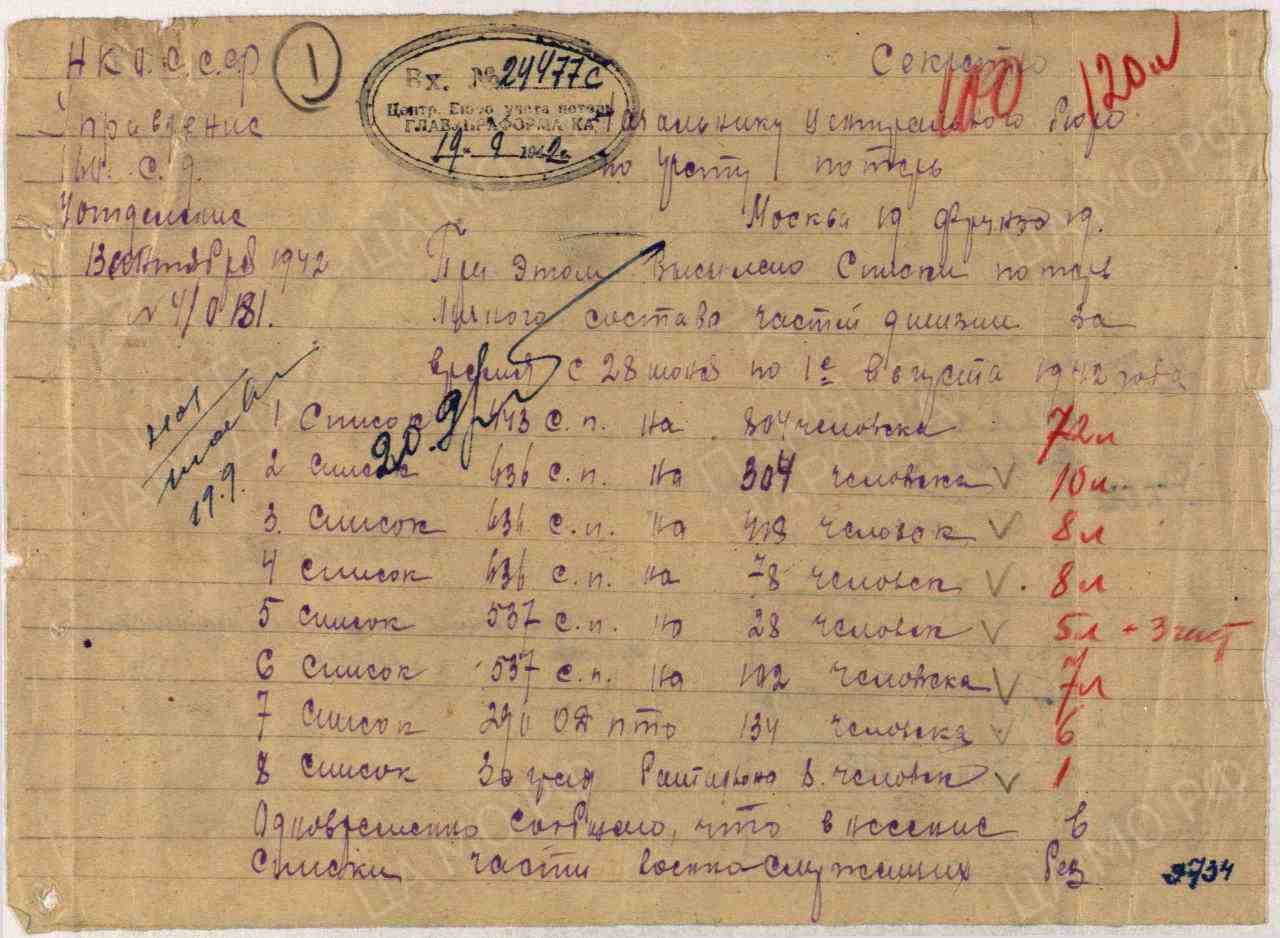 НКО.С.С.СР
1
Вх. № 24477с
Центр. Бюро учета потерь
ГЛАВУПРАФОРМА КА
19 9 1942г.
Секретно
120л
Управление
С.Д.
Начальнику Центрального Бюро
по учету потерь
4 отделение
Москва 19 Фрунзе 19.
13 сентября 1942
№ 4/0181.
При этом высылаю списки потерь
личного состава частей дивизии за
время с 28 июня по 1е августа 1942 года
19.9.
20.9
1 Список с.п. на 804 человека 72л
2 Список 636 с.п. на 304 человека 10л
3. Список 636 с.п. на человек 8л
4 Список 636 с.п. на 78 человек 8л
5 Список 537 с.п. на 28 человек 5л + 3 лист
6 Список 537 с.п. на 102 человека 7л
7 Список 290 ОД ПТО 134 человека 6
8 Список Заград Батальона 8. человек 1
Одновременно сообщаю, что внесение в
списки части военнослужащих Рез
3734
ЦА МО РФ